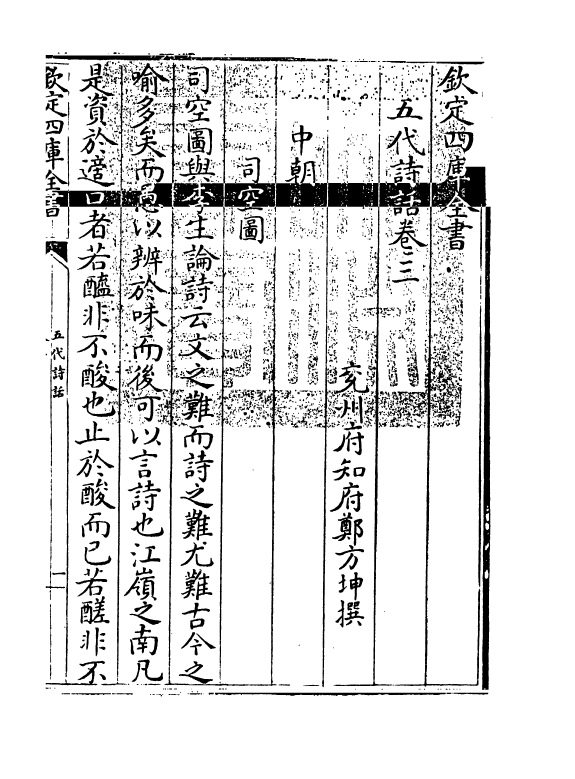 欽定四庫全書
五代詩話卷三
兖州府知府鄭方坤撰
中朝
司空圖
司空圖與李生論詩云文之難而詩之難尤難古今之
喻多矣而愚以辨於味而後可以言詩也江嶺之南凡
是資於適口者若醯非不酸也止於酸而已若醝非不
欽定四庫全書
五代詩話
一